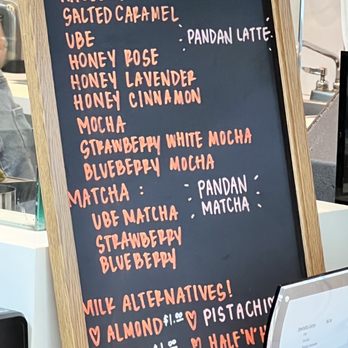 SALTED CARAMEL
UBE
PANDAN LATTE
HONEY ROSE
HONEY LAVENDER
HONEY CINNAMON
MOCHA
STRAWBERRY WHITE MOCHA
BLUEBERRY MOCHA
MATCHA :
PANDAN
MATCHA
UBE MATCHA
STRAWBERRY
BLUEBERRY
MILK ALTERNATIVES!
♡ ALMOND $1.00 ♡ PISTACHI
♡ HALF'N'H